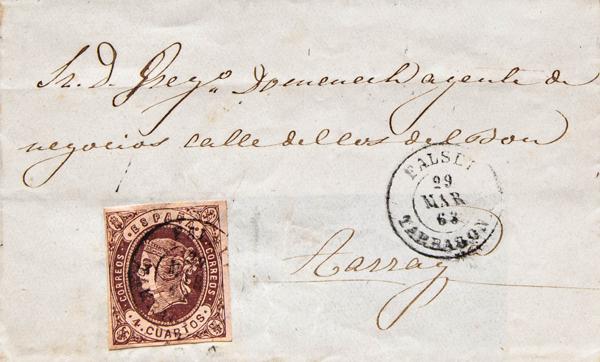 Sr. D. Grego Domenech agente de
negocios calle de
FALSET
29
MAR
63
TARRAGON
ESPAÑA
CORREOS
CORREOS
4 CUARTOS
Tarrag